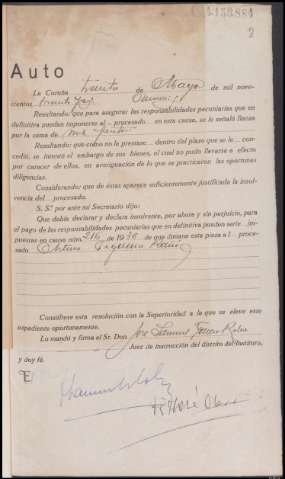 2
Auto
La Coruña treinta de Mayo de mil nove-
cientos treinta y
Resultando: que para asegurar las responsabilidades pecuniarias que en
definitiva puedan imponerse al procesado en esta causa, se le señaló fianza
por la suma de
Resultando: que como no la prestase dentro del plazo que se le con-
cedió, se decretó el embargo de sus bienes, el cual no pudo llevarse a efecto
por carecer de ellos, en averiguación de lo que se practicaron las oportunas
diligencias.
Considerando: que de éstas aparece suficientemente justificada la insol-
vencia del procesado.
S. Sª por ante mí Secretario dijo:
Que debía declarar y declara insolvente, por ahora y sin perjuicio, para
el pago de las responsabilidades pecuniarias que en definitiva puedan serle im-
puestas en causa núm. 216 de 1936 de que dimana esta pieza al pro-
cesado Arturo
Consúltese esta resolución con la Superioridad a la que se eleve este
expediente oportunamente.
Lo mandó y firma el Sr. Don José
Juez de instrucción del distrito del Instituto,
y doy fé.
E/